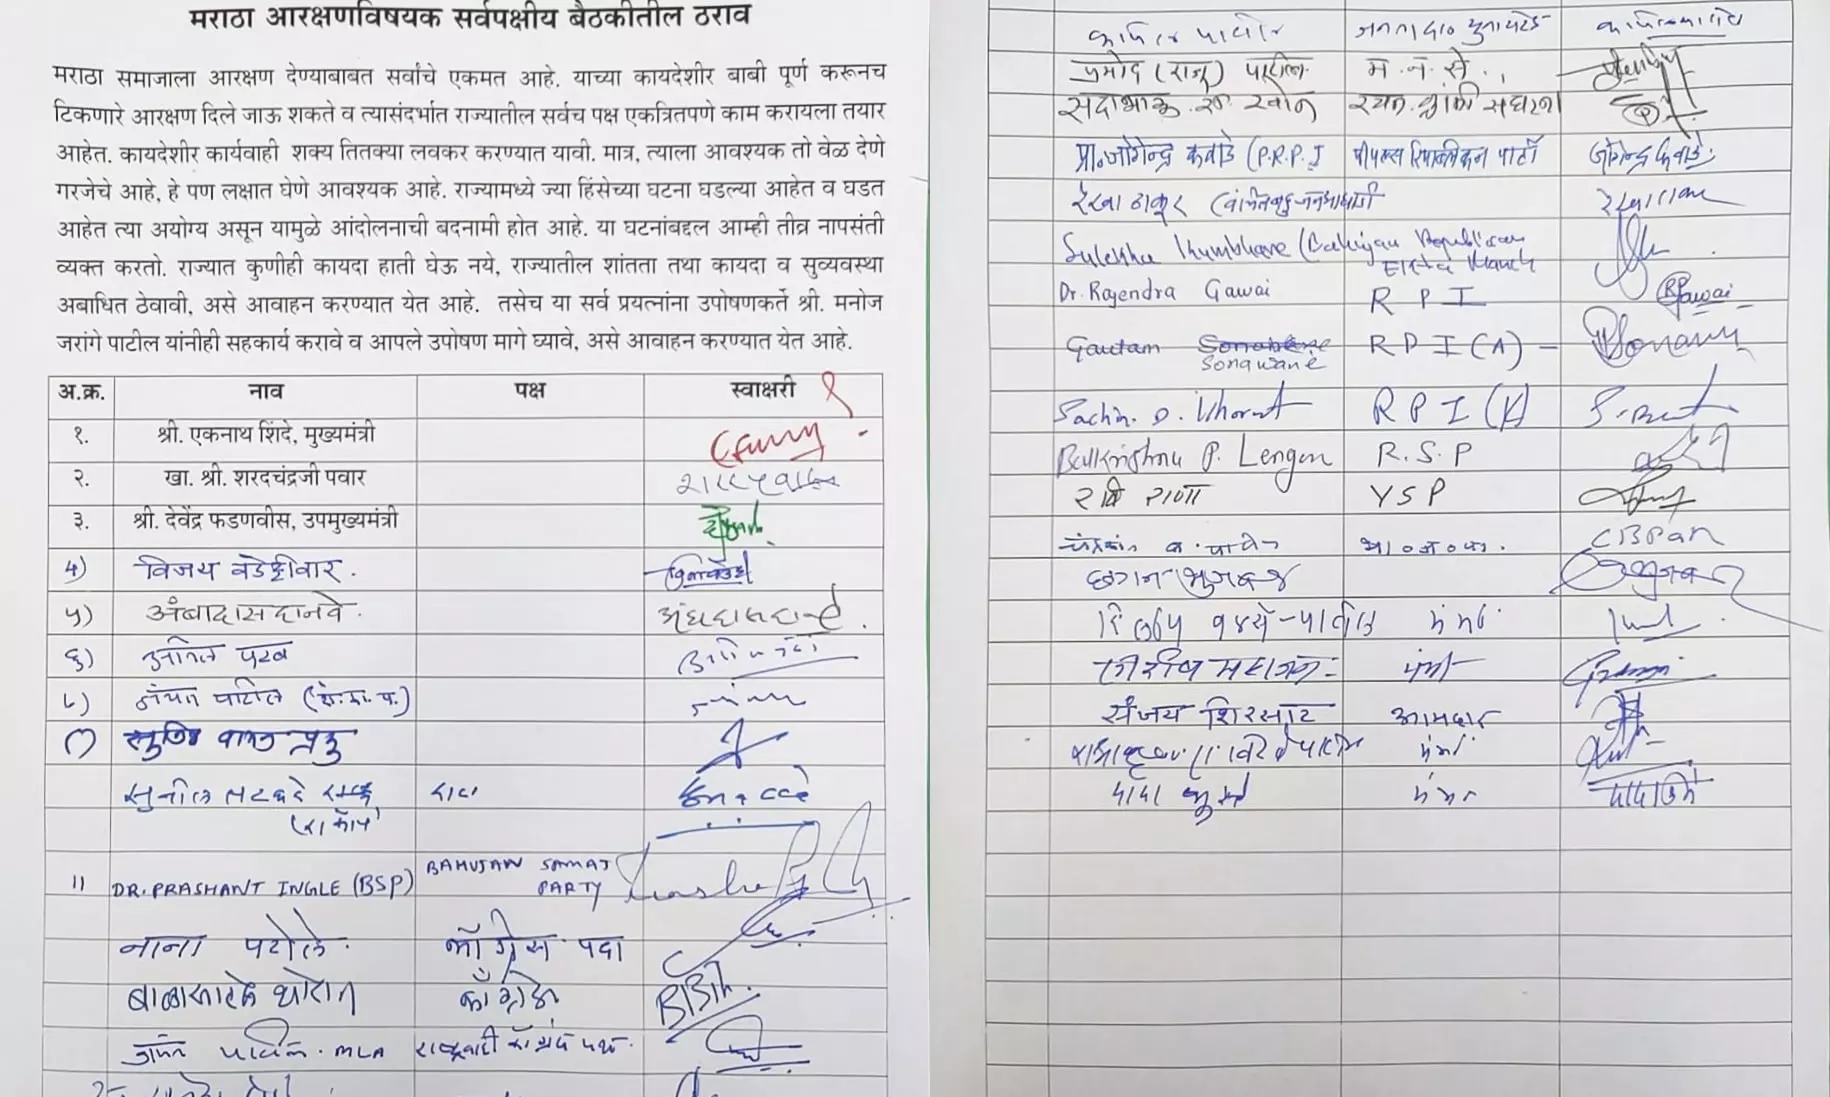 मराठा आरक्षणविषयक सर्वपक्षीय बैठकीतील ठराव
मराठा समाजाला आरक्षण देण्याबाबत सर्वांचे एकमत आहे. याच्या कायदेशीर बाबी पूर्ण करूनच
टिकणारे आरक्षण दिले जाऊ शकते व त्यासंदर्भात राज्यातील सर्वच पक्ष एकत्रितपणे काम करायला तयार
आहेत. कायदेशीर कार्यवाही शक्य तितक्या लवकर करण्यात यावी. मात्र, त्याला आवश्यक तो वेळ देणे
गरजेचे आहे, हे पण लक्षात घेणे आवश्यक आहे. राज्यामध्ये ज्या हिंसेच्या घटना घडल्या आहेत व घडत
आहेत त्या अयोग्य असून यामुळे आंदोलनाची बदनामी होत आहे. या घटनांबद्दल आम्ही तीव्र नापसंती
व्यक्त करतो. राज्यात कुणीही कायदा हाती घेऊ नये, राज्यातील शांतता तथा कायदा व सुव्यवस्था
अबाधित ठेवावी, असे आवाहन करण्यात येत आहे. तसेच या सर्व प्रयत्नांना उपोषणकर्ते श्री. मनोज
जरांगे पाटील यांनीही सहकार्य करावे व आपले उपोषण मागे घ्यावे, असे आवाहन करण्यात येत आहे.
अ.क्र. नाव पक्ष स्वाक्षरी
१. श्री. एकनाथ शिंदे, मुख्यमंत्री
२. खा. श्री. शरदचंद्रजी पवार
३. श्री. देवेंद्र फडणवीस, उपमुख्यमंत्री
४) विजय वडेट्टीवार.
५) अंबादास दानवे. अंबादास दानवे.
६) अनिल परब
७) जयंत पाटील (शे.का.प.)
सुनील तटकरे
11 DR. PRASHANT INGLE (BSP) BAHUJAN SAMAJ
PARTY
नाना पटोले. काँग्रेस पक्ष
बाळासाहेब थोरात काँग्रेस
जयंत पाटील. MLA राष्ट्रवादी काँग्रेस पक्ष.
कपिल पाटील जनता दल युनायटेड
प्रमोद (राजू) पाटील म. न. से.
सदाभाऊ खोत रयत क्रांती संघटना
प्रा. जोगेन्द्र कवाडे (P.R.P.) पीपल्स रिपब्लिकन पार्टी जोगेन्द्र कवाडे
रेखा ठाकूर (वंचित बहुजन आघाडी
Sulekha Kumbhare (Bahujan Republican
Ekta Manch
Dr. Rajendra Gawai R P I
Gautam
Sonawane R P I (A) -
Sachin. D. Kharat R P I (K)
Balkrishna P. Lengare R.S.P
रवि राणा YSP
चंद्रकांत ब. पाटील भा०ज०प.
छगन भुजबळ
दिलीप वळसे-पाटील मंत्री
गिरीष महाजन मंत्री
संजय शिरसाट आमदार
राधाकृष्ण विखे पाटील मंत्री
दादा भुसे मंत्री